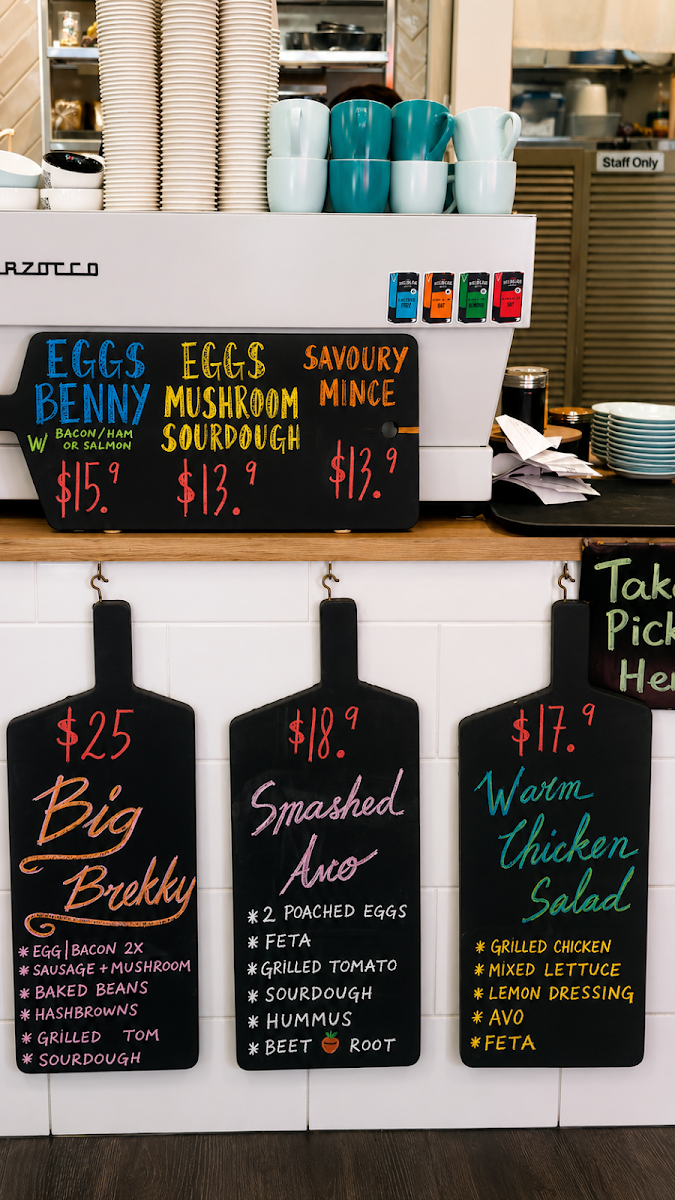 Staff Only
EGGS
BENNY
W/ BACON/HAM
OR SALMON
$15.9
EGGS
MUSHROOM
SOURDOUGH
$13.9
SAVOURY
MINCE
$13.9
$25
Big
Brekky
* EGG|BACON 2X
* SAUSAGE + MUSHROOM
* BAKED BEANS
* HASHBROWNS
* GRILLED TOM
* SOURDOUGH
$18.9
Smashed
Avo
* 2 POACHED EGGS
* FETA
* GRILLED TOMATO
* SOURDOUGH
* HUMMUS
* BEET ROOT
$17.9
Warm
Chicken
Salad
* GRILLED CHICKEN
* MIXED LETTUCE
* LEMON DRESSING
* AVO
* FETA
Take
Pick
Her